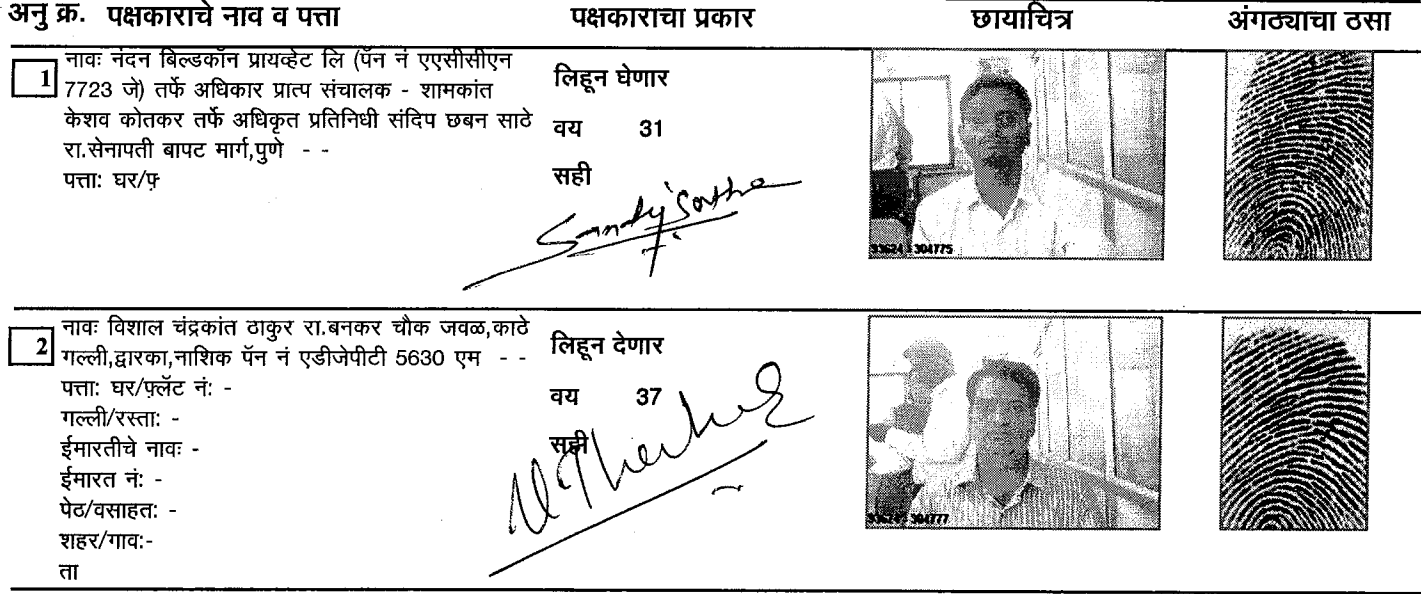 अनु क्र. पक्षकाराचे नाव व पत्ता पक्षकाराचा प्रकार छायाचित्र अंगठ्याचा ठसा
1
नावः नंदन बिल्डकॉन प्रायव्हेट लि (पॅन नं एएसीसीएन
7723 जे) तर्फे अधिकार प्रात्प संचालक - शामकांत
केशव कोतकर तर्फे अधिकृत प्रतिनिधी संदिप छबन साठे
रा.सेनापती बापट मार्ग,पुणे - -
पत्ताः घर/फ़
लिहून घेणार
वय 31
सही
33624 304775
2
नावः विशाल चंद्रकांत ठाकुर रा.बनकर चौक जवळ,काठे
गल्ली,द्वारका,नाशिक पॅन नं एडीजेपीटी 5630 एम - -
पत्ताः घर/फ़्लॅट नंः -
गल्ली/रस्ताः -
ईमारतीचे नावः -
ईमारत नंः -
पेठ/वसाहतः -
शहर/गावः-
ता
लिहून देणार
वय 37
सही